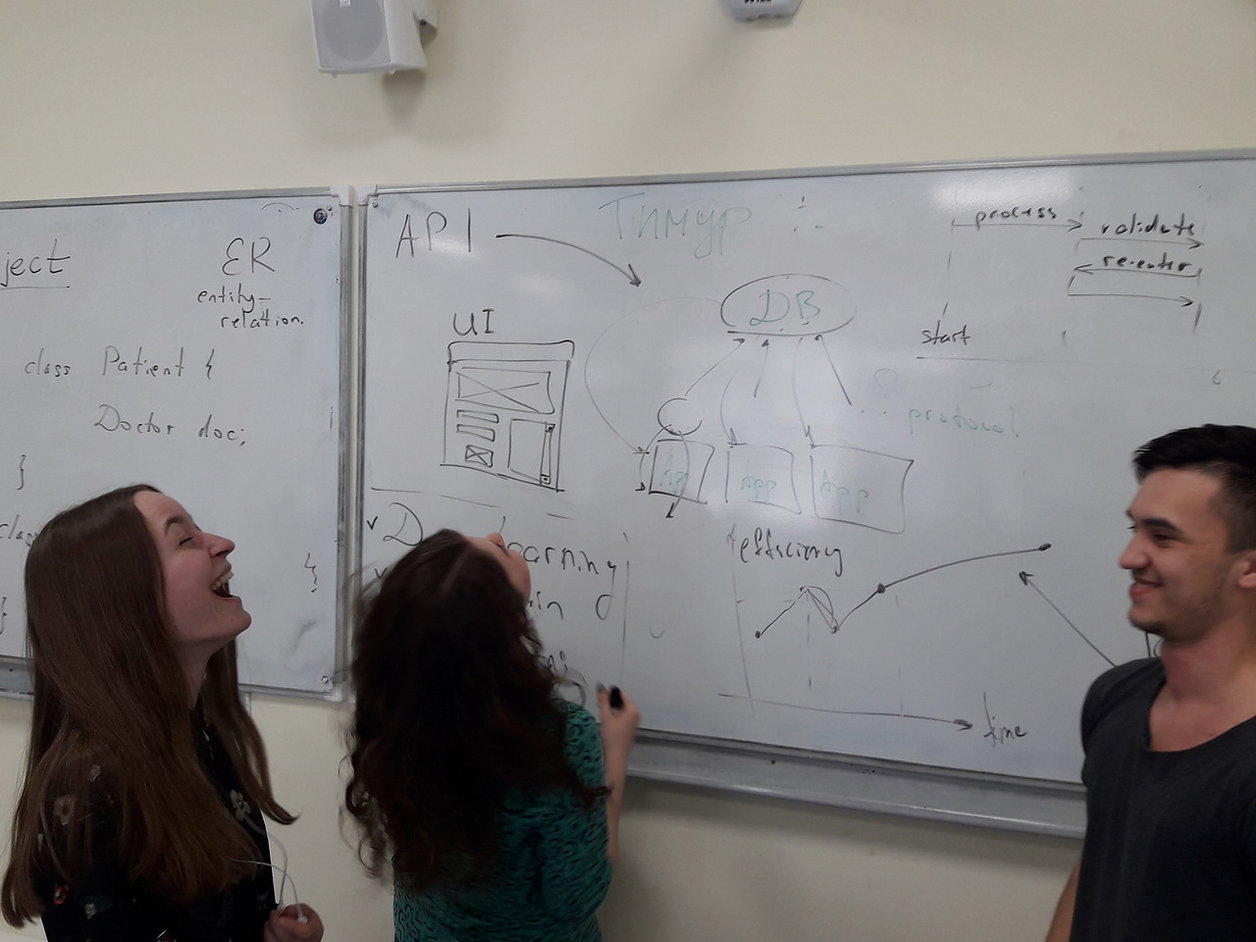 ject
ER
entity-
relation.
class Patient {
Doctor doc;
}
}
API
Тимур
UI
DB
App
App
App
protocol
process
validate
re-enter
start
efficiency
time